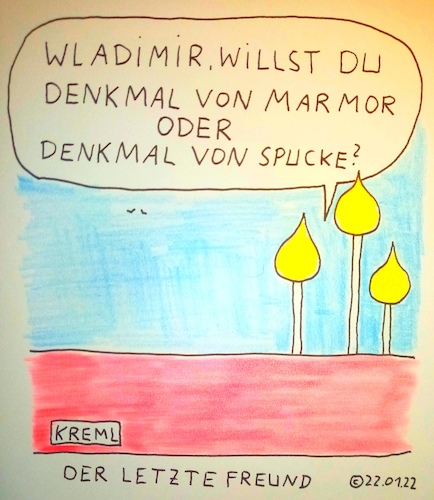 WLADIMIR, WILLST DU
DENKMAL VON MARMOR
ODER
DENKMAL VON SPUCKE?
KREML
DER LETZTE FREUND ©22.01.22